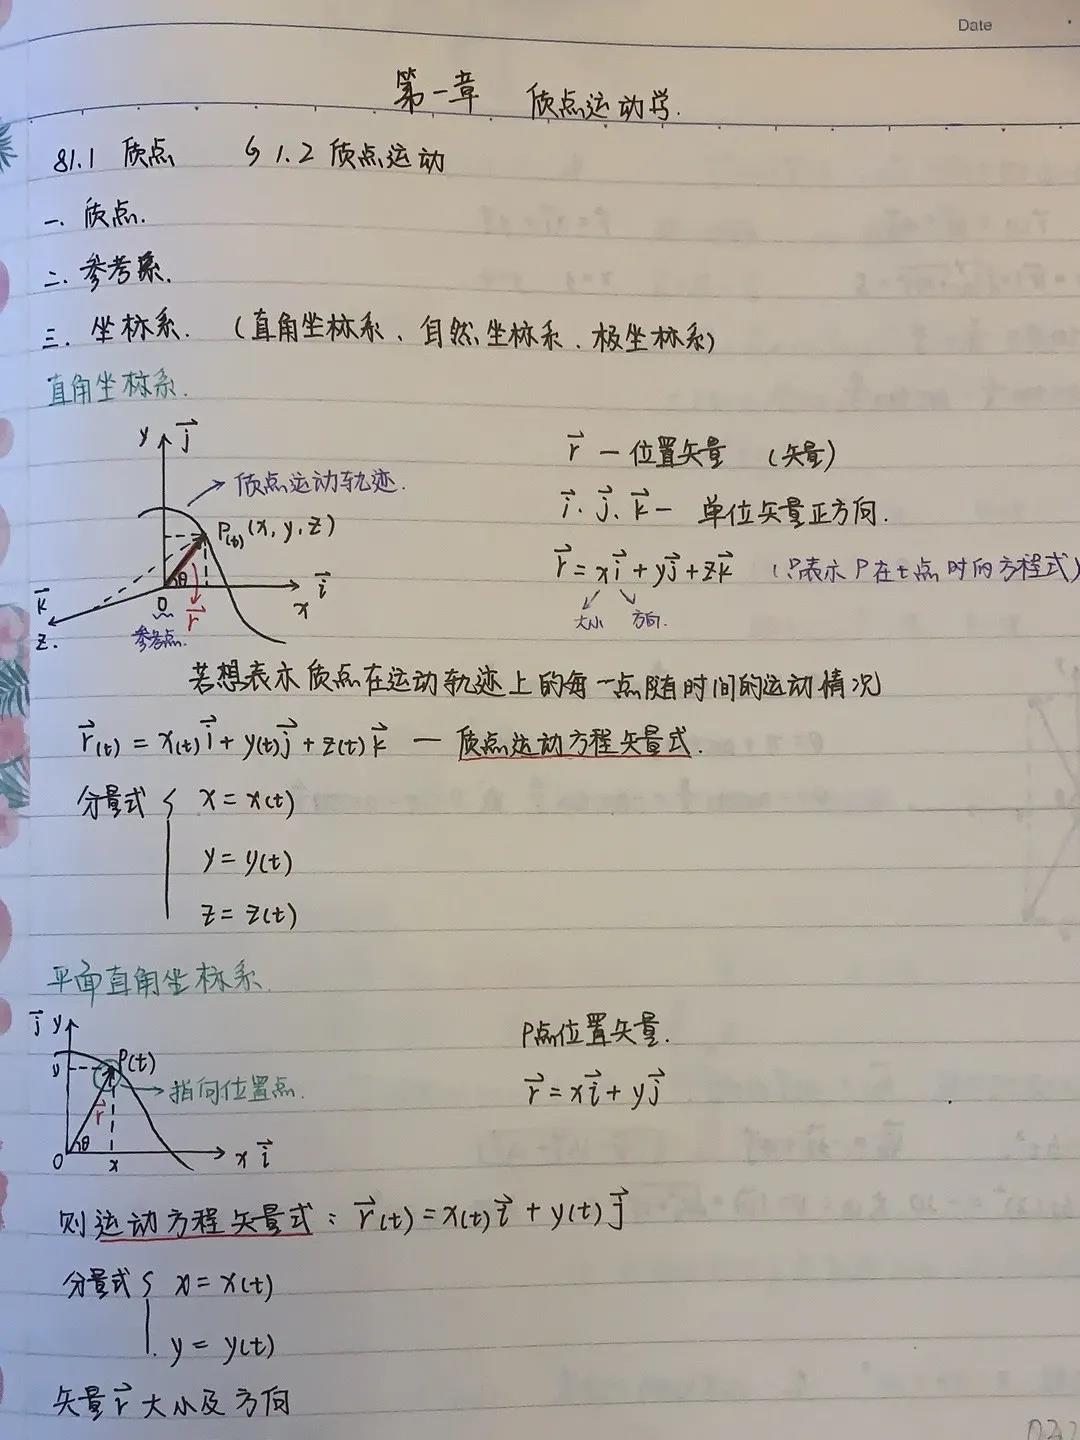 Date
第一章 质点运动学.
§1.1 质点 §1.2 质点运动
一. 质点.
二. 参考系.
三. 坐标系. (直角坐标系、自然坐标系、极坐标系)
直角坐标系.
y j⃗
质点运动轨迹.
P(t) (x, y, z)
θ
k⃗
z.
O
r⃗
x i⃗
参考点.
r⃗ — 位置矢量 (矢量)
i⃗. j⃗. k⃗ — 单位矢量正方向.
r⃗ = xi⃗ + yj⃗ + zk⃗ (只表示P在t点时的方程式)
大小 方向.
若想表示质点在运动轨迹上的每一点随时间的运动情况
r⃗(t) = x(t)i⃗ + y(t)j⃗ + z(t)k⃗ — 质点运动方程矢量式.
分量式 { x = x(t)
y = y(t)
z = z(t)
平面直角坐标系.
j⃗ y
P(t)
指向位置点.
r⃗
θ
O x x i⃗
P点位置矢量.
r⃗ = xi⃗ + yj⃗
则运动方程矢量式: r⃗(t) = x(t)i⃗ + y(t)j⃗
分量式 { x = x(t)
y = y(t)
矢量r⃗大小及方向